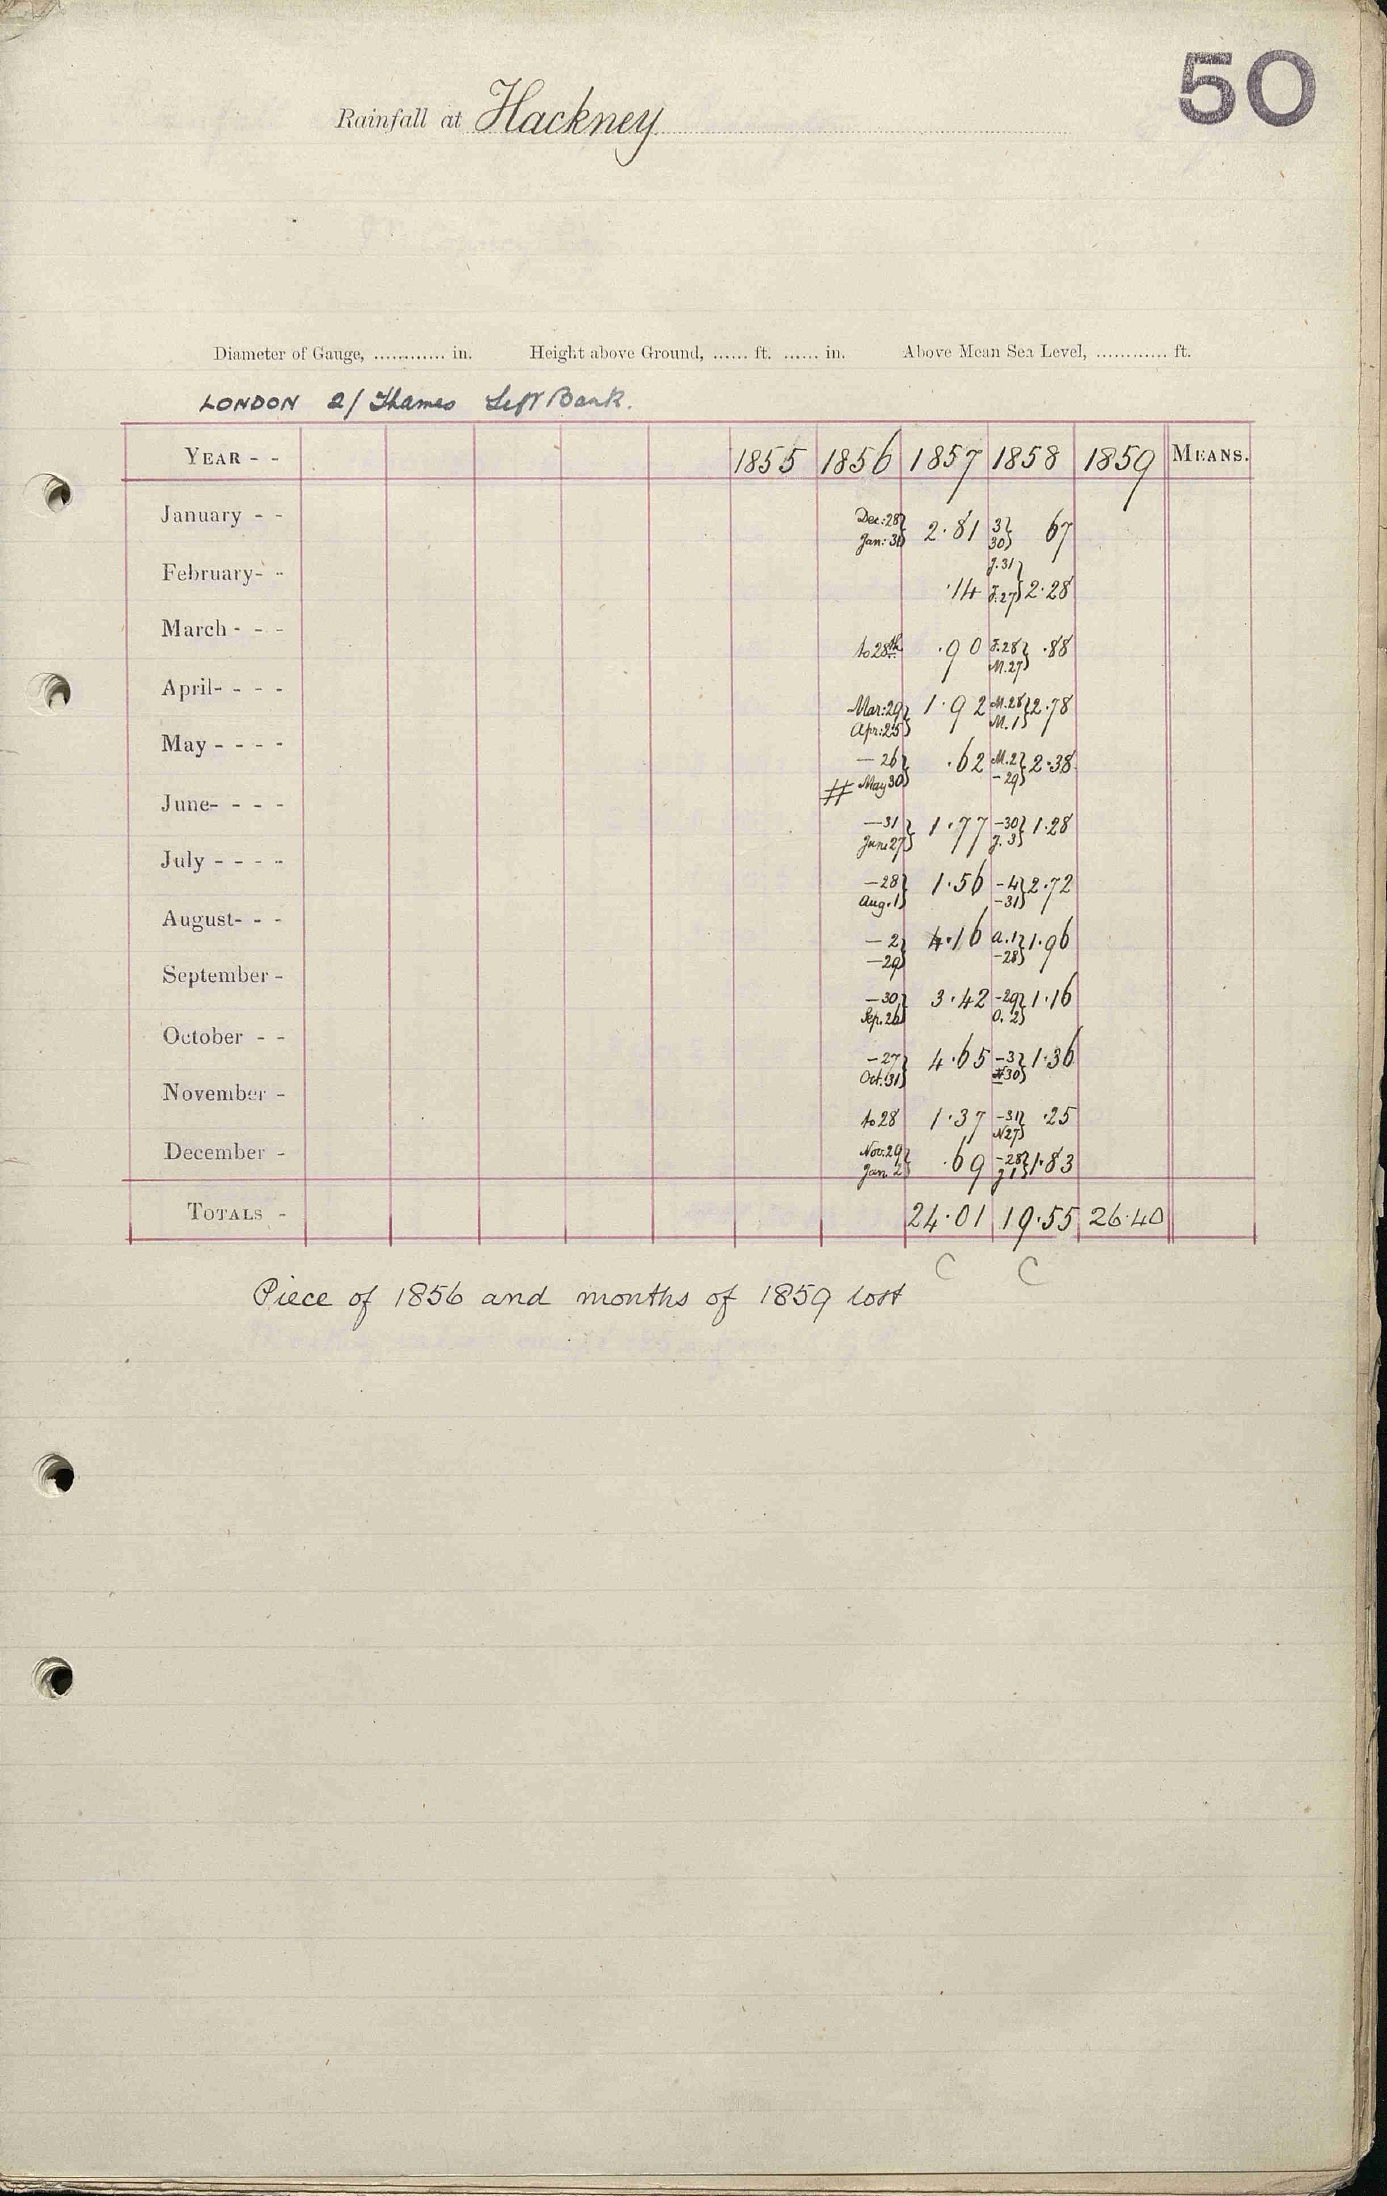 50
Rainfall at Hackney
Diameter of Gauge, ............ in. Height above Ground, ...... ft. ...... in. Above Mean Sea Level, ............ ft.
LONDON 2/ Thames Left Bank.
YEAR - - 1855 1856 1857 1858 1859 MEANS.
January - - Dec: 28} Jan: 30} 2.81 3} 30} 67
February- - .14 J.31} F.27} 2.28
March - - - to 28th .90 F.28} M.27} .88
April- - - - Mar: 29} Apr: 25} 1.92 M.28} M.1} 2.78
May - - - - — 26} # May 30} .62 M.2} - 29} 2.38
June- - - - — 31} June 27} 1.77 - 30} J. 3} 1.28
July - - - - — 28} Aug. 1} 1.56 - 4} - 31} 2.72
August- - - — 2} — 29} 4.16 A. 1} - 28} 1.96
September - — 30} Sep. 26} 3.42 - 29} O. 2} 1.16
October - - — 27} Oct. 31} 4.65 - 3} 30} 1.36
November - to 28 1.37 - 31} N 27} .25
December - Nov. 29} Jan. 2} .69 - 28} J 1} 1.83
TOTALS - 24.01 19.55 26.40
C C
Piece of 1856 and months of 1859 lost